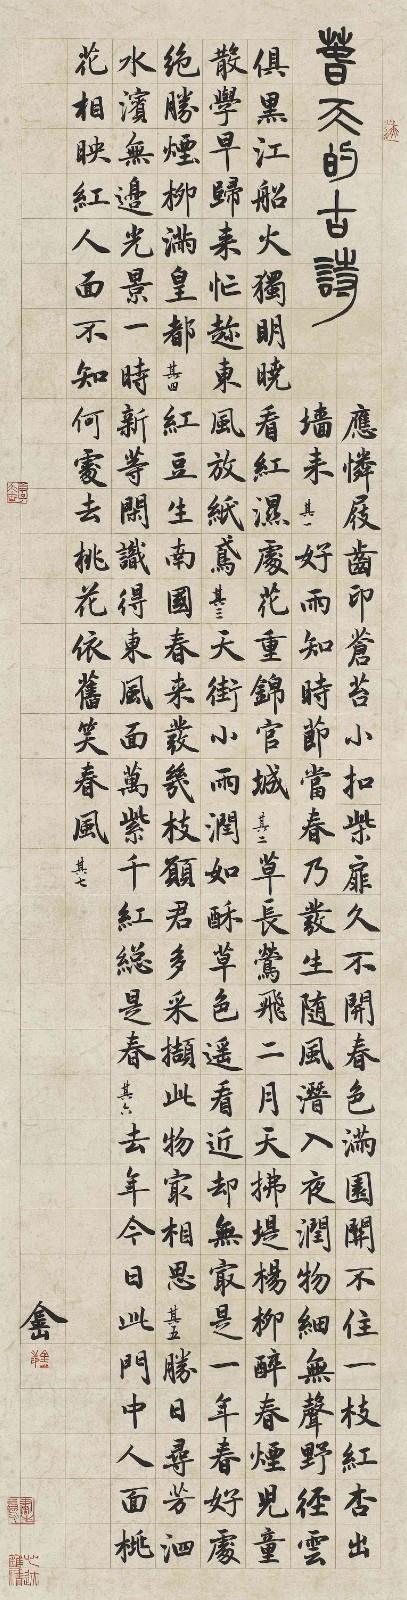 萅天的古詩
應憐屐齒印蒼苔小扣柴扉久不開春色滿園關不住一枝紅杏出
墻来其一好雨知時節當春乃發生随風潛入夜潤物細無聲野徑雲
俱黑江船火獨明曉看紅濕處花重錦官城其二草長鶯飛二月天拂堤楊柳醉春煙兒童
散學早歸来忙趂東風放紙鳶其三天街小雨潤如酥草色遥看近却無冣是一年春好處
絶勝煙柳滿皇都其四紅豆生南國春来發幾枝願君多采擷此物冣相思其五勝日尋芳泗
水濱無邊光景一時新等閑識得東風面萬紫千紅總是春其六去年今日此門中人面桃
花相映紅人面不知何處去桃花依舊笑春風其七